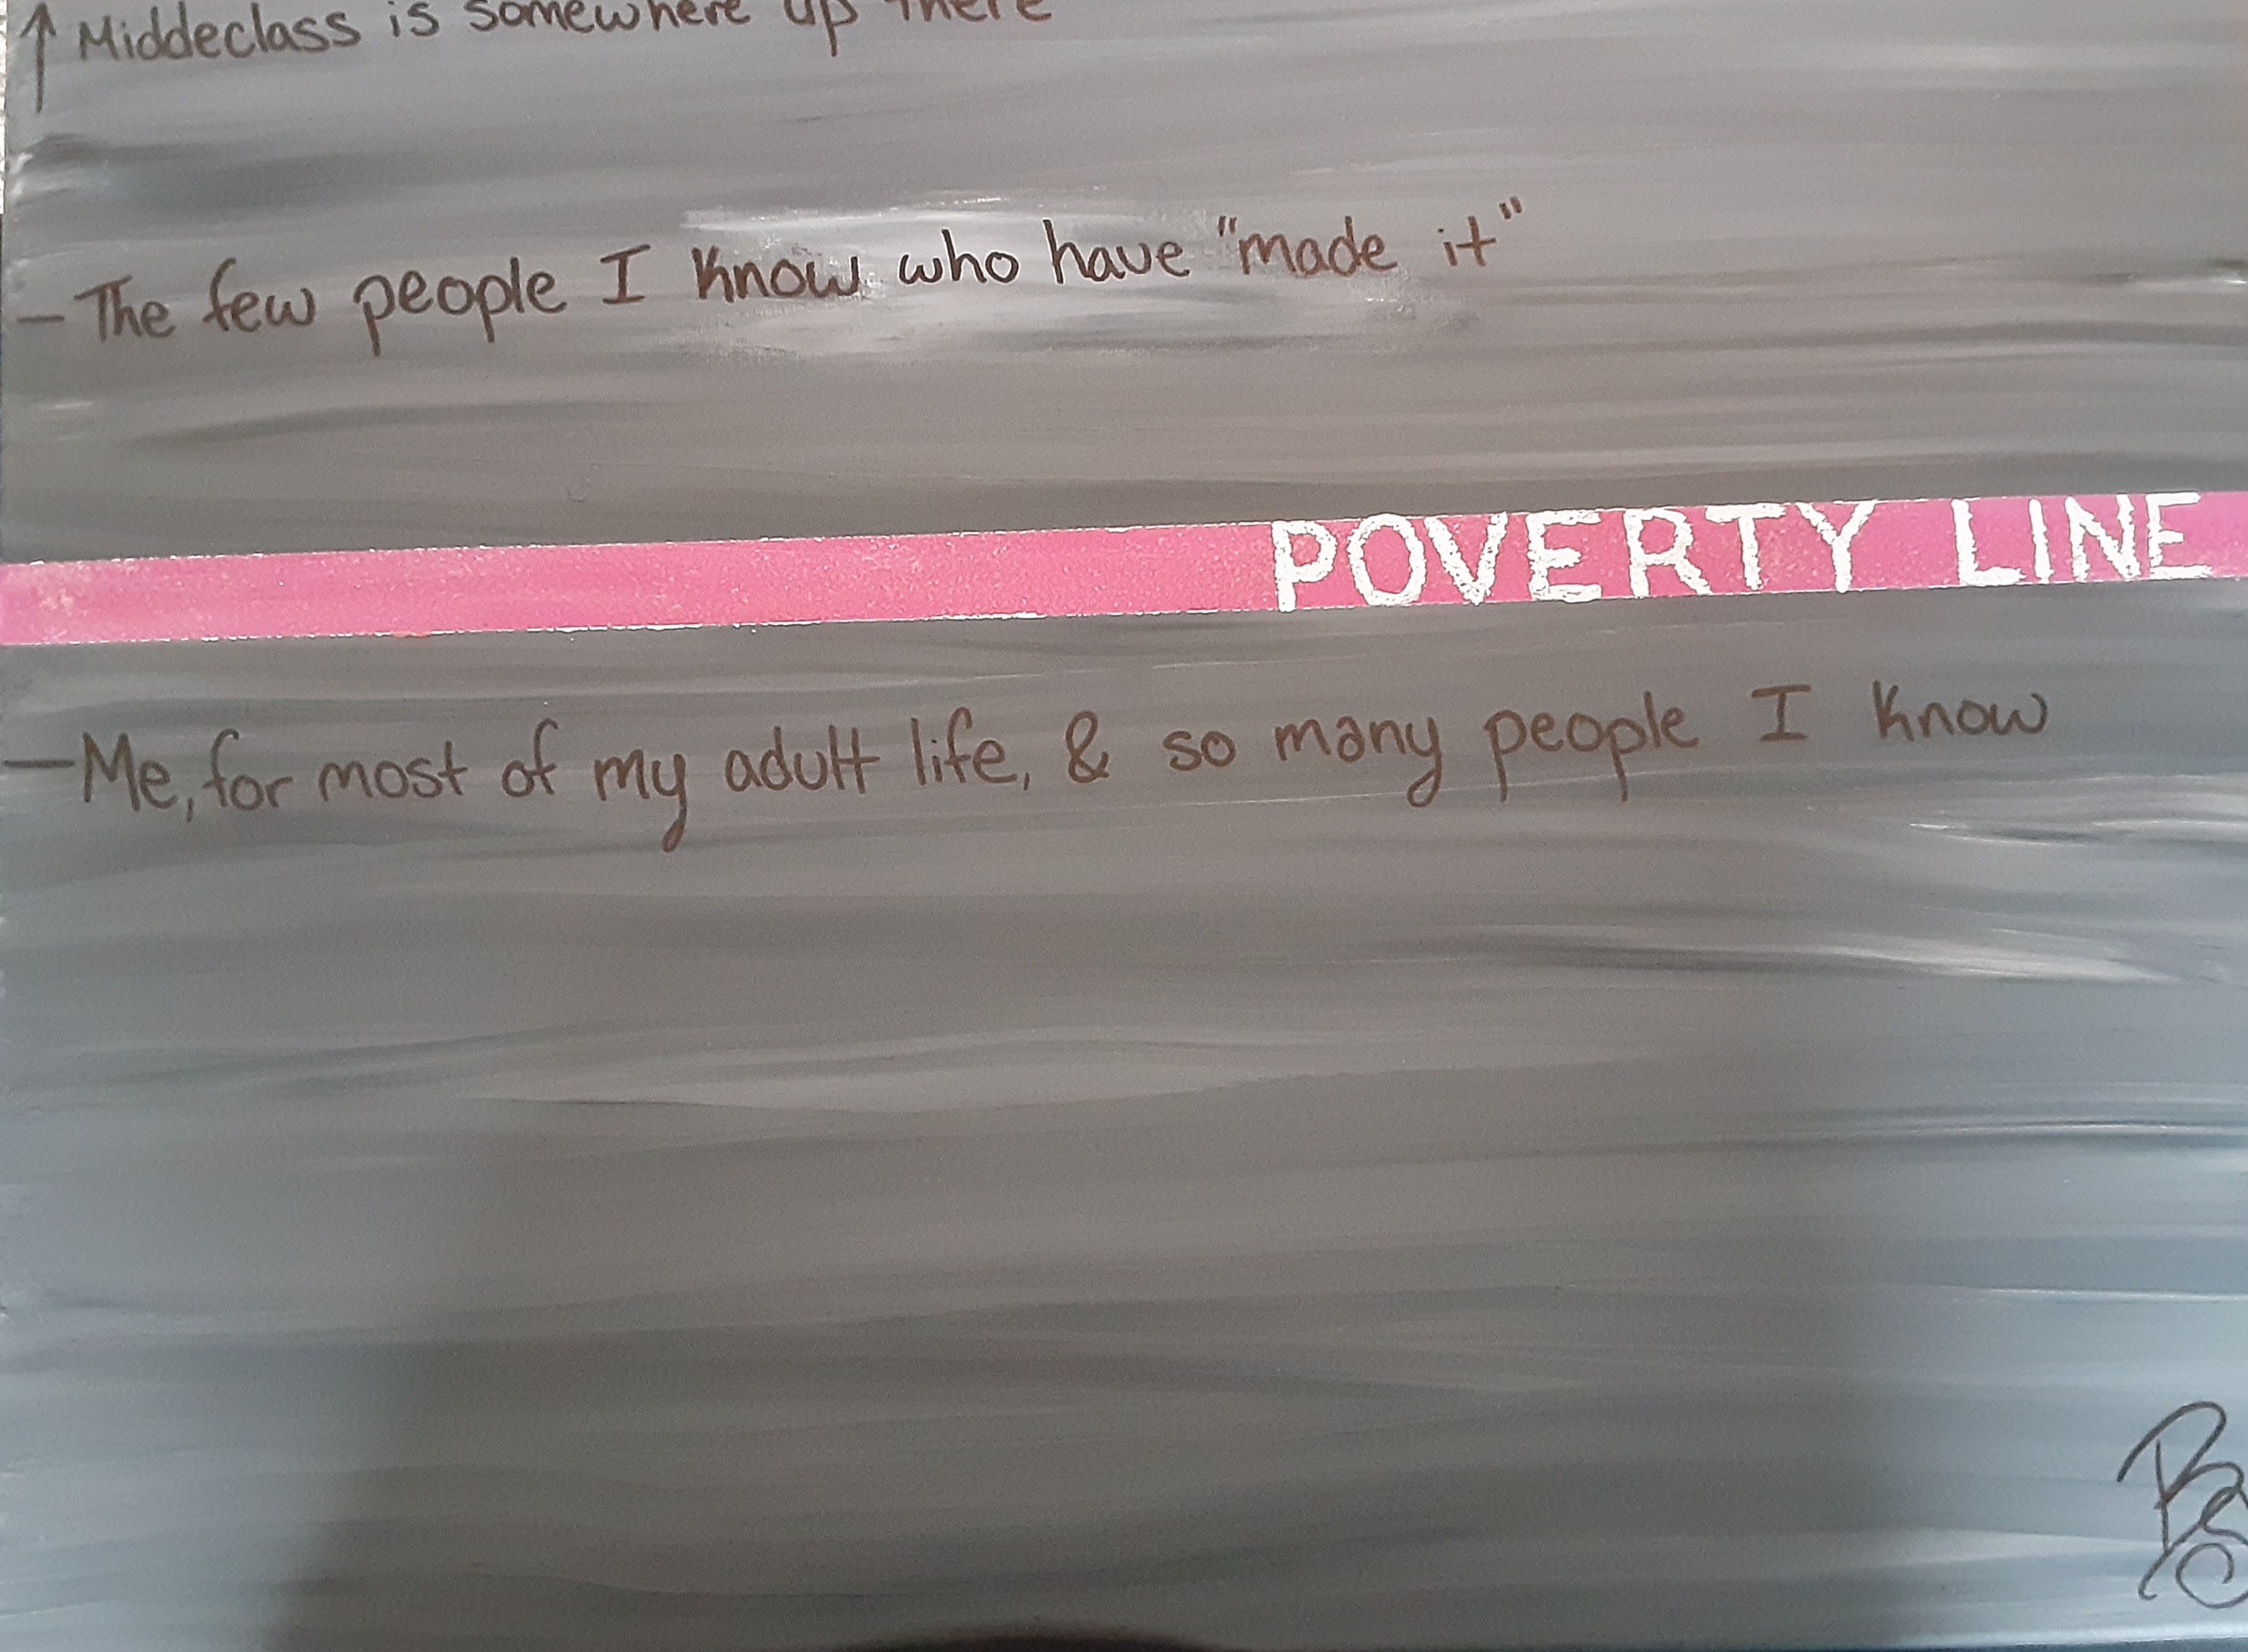 ↑ Middeclass is somewhere up there
- The few people I know who have "made it"
POVERTY LINE
- Me, for most of my adult life, & so many people I know